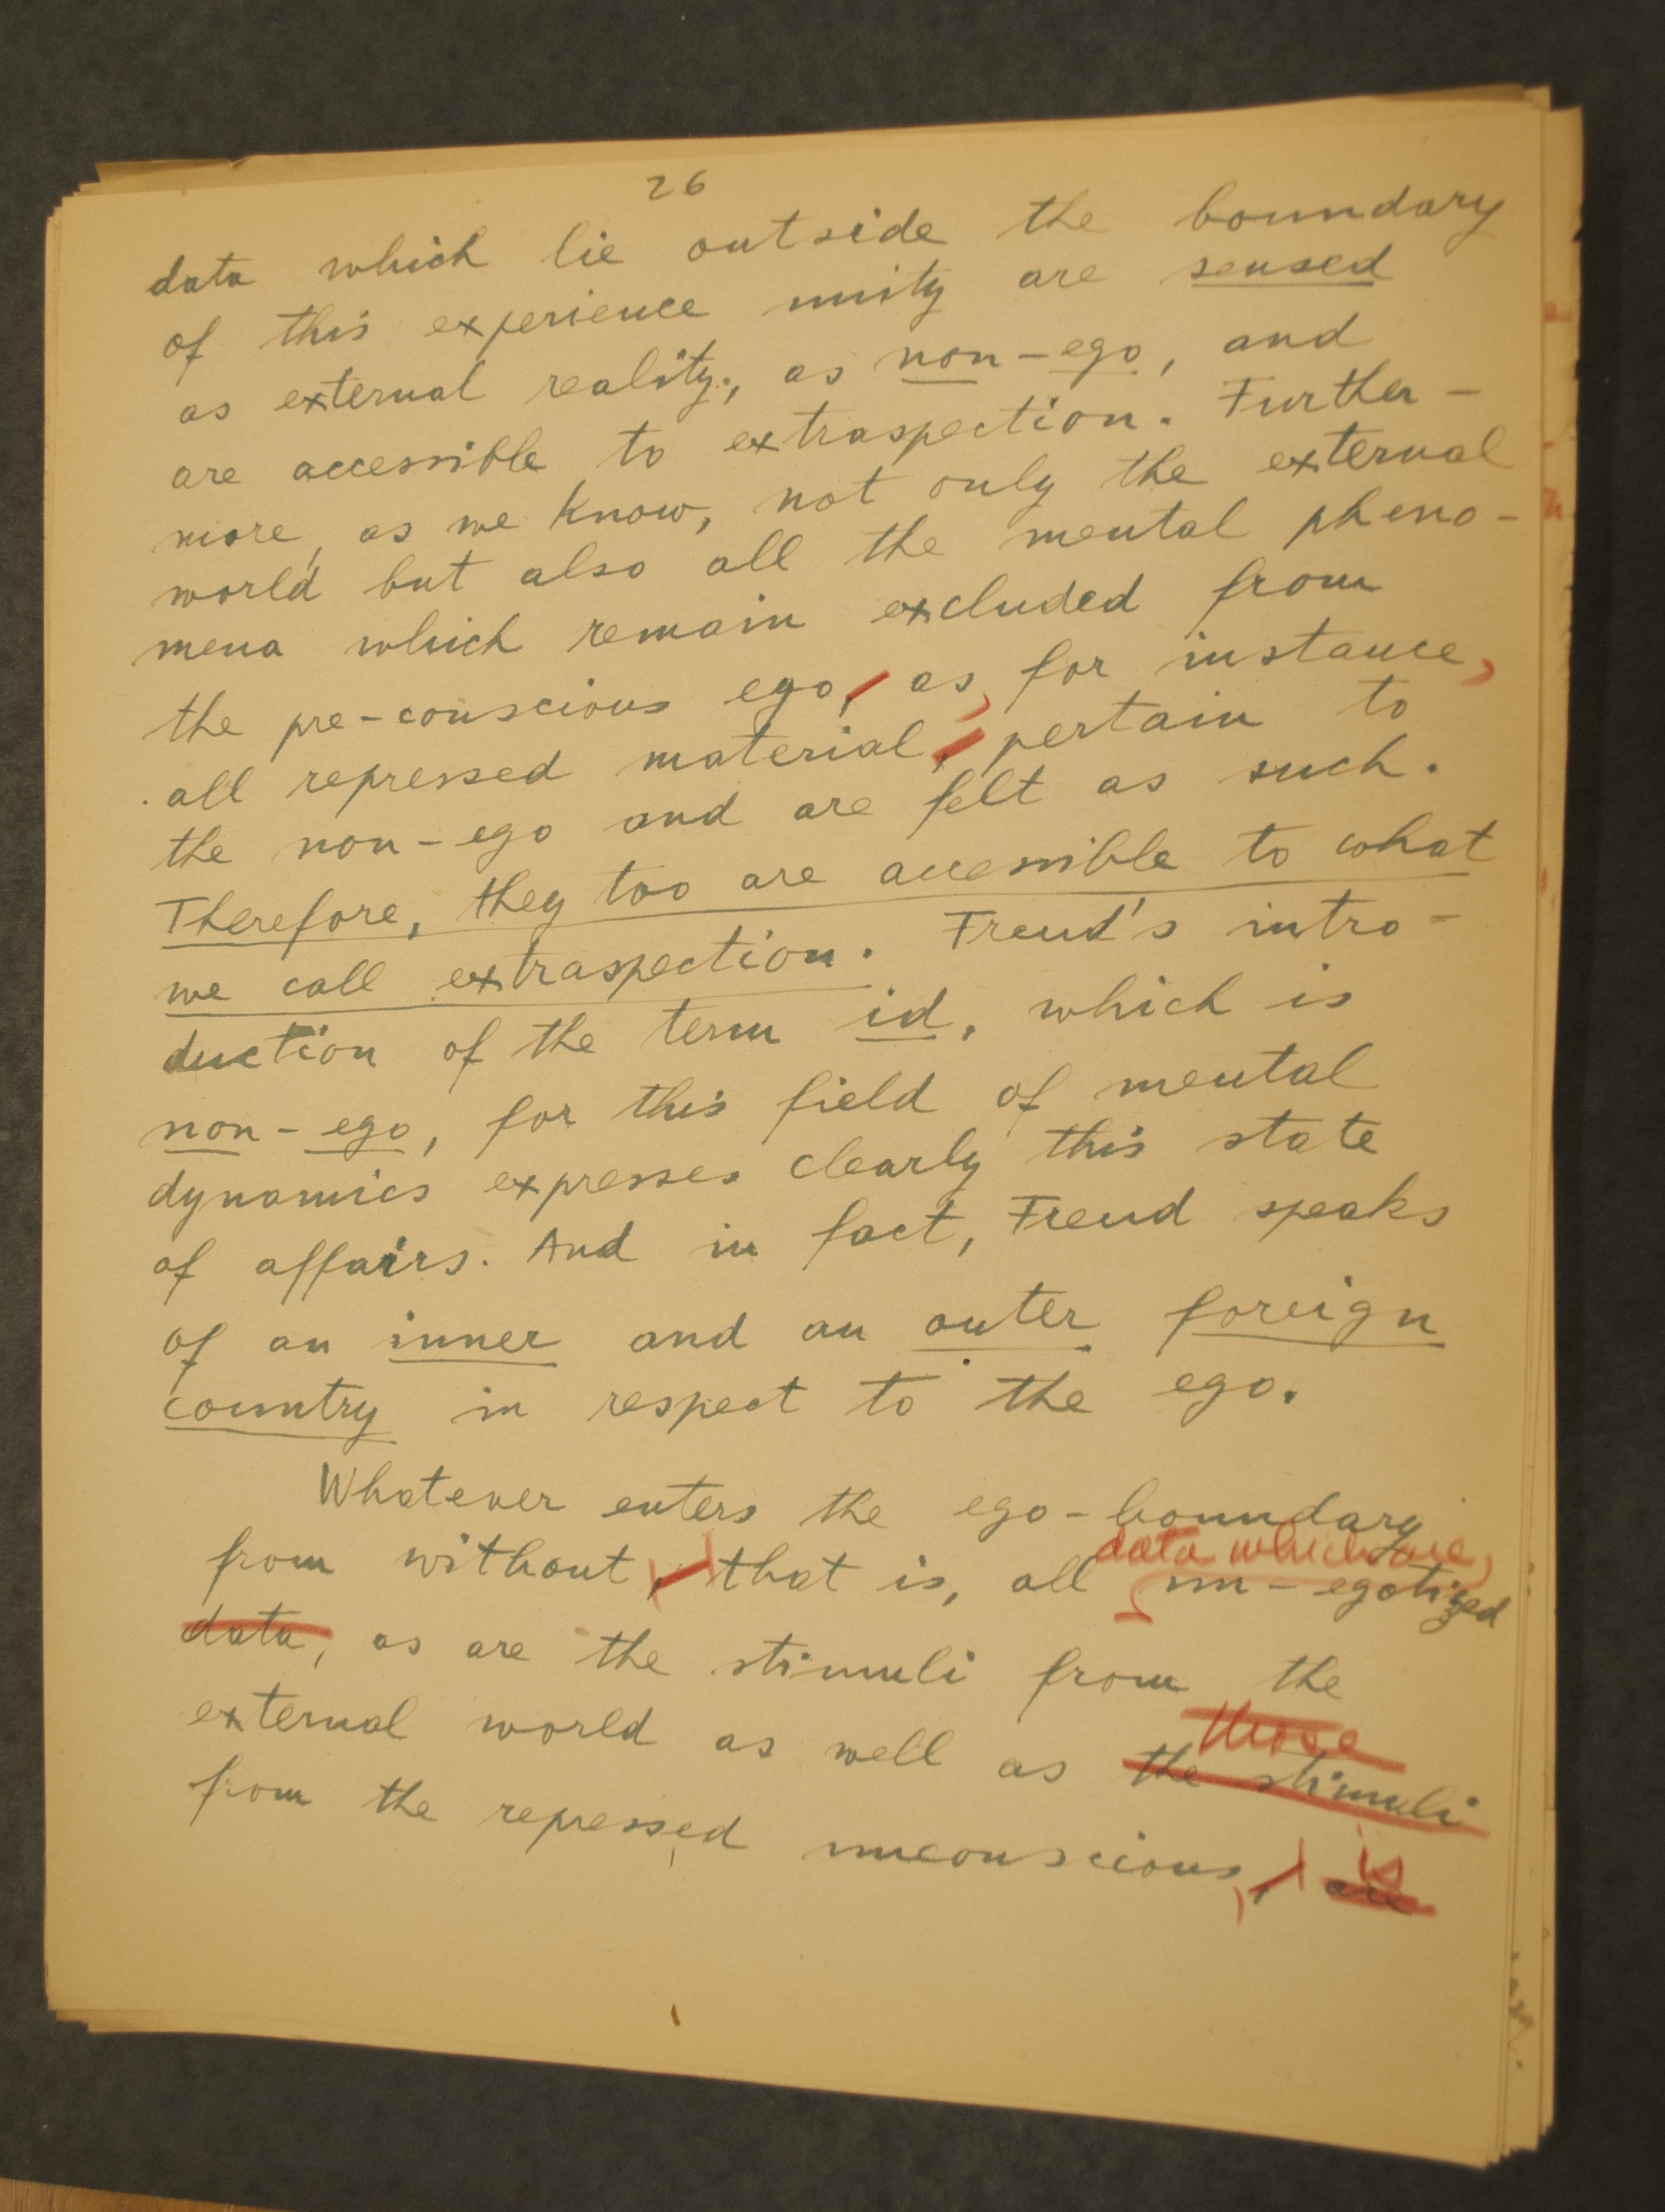 26
data which lie outside the boundary
of this experience unity are sensed
as external reality, as non-ego, and
are accessible to extraspection. Further-
more, as we know, not only the external
world but also all the mental pheno-
mena which remain excluded from
the pre-conscious ego, as, for instance,
all repressed material, pertain to
the non-ego and are felt as such.
Therefore, they too are accessible to what
we call extraspection. Freud's intro-
duction of the term id, which is
non-ego, for this field of mental
dynamics expresses clearly this state
of affairs. And in fact, Freud speaks
of an inner and an outer foreign
country in respect to the ego.
Whatever enters the ego-boundary
data which are,
from without, that is, all un-egotized
data, as are the stimuli from the
those
external world as well as the stimuli
is
from the repressed unconscious, are